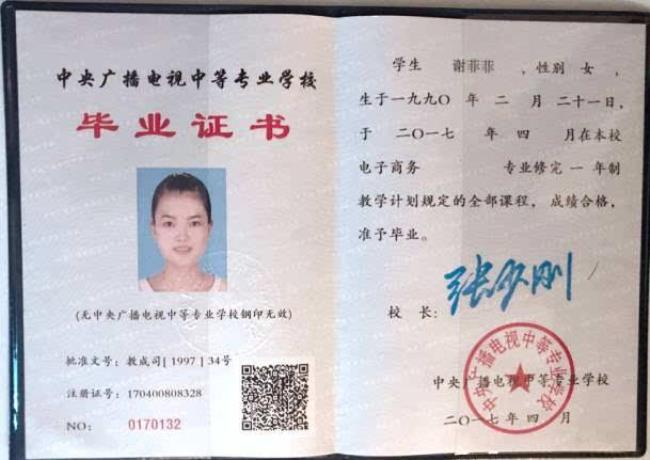 中央广播电视中等专业学校
毕业证书
(无中央广播电视中等专业学校钢印无效)
批准文号：教成司[1997]34号
注册证号：170400808328
NO： 0170132
学生 谢菲菲 ，性别 女 ，
生于一九九〇 年 二 月 二十一日，
于 二〇一七 年 四 月在本校
电子商务 专业修完 一 年制
教学计划规定的全部课程， 成绩合格，
准予毕业。
校 长：
中央广播电视中等专业学校
中央广播电视中等专业学校
二〇一七年 四 月